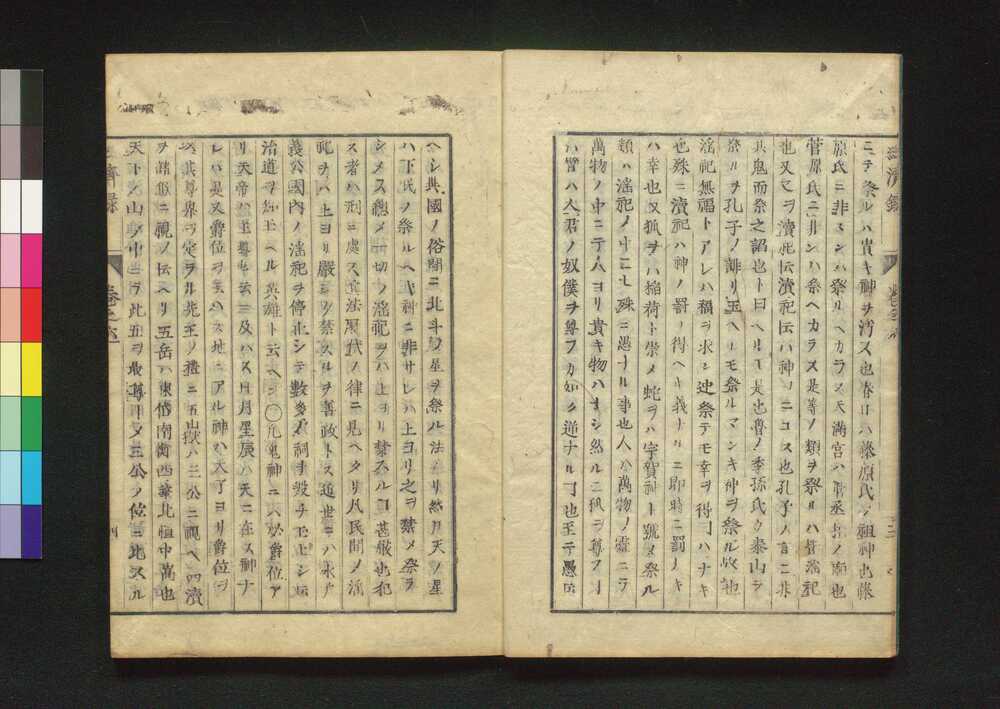 ニテ祭ルハ貴キ神ヲ涜ス也春日ハ藤原氏ノ祖神也藤
原氏ニ非スンハ祭ルヘカラス天満宮ハ菅丞相ノ廟也
菅原氏ニ非ンハ祭ヘカラス是等ノ類ヲ祭ルハ皆淫祀
也又之ヲ涜祀ト云涜祀ト云ハ神ヲ
其鬼而祭之諂也ト曰ヘルモ是也魯ノ季孫氏カ泰山ヲ
祭ルヲ孔子ノ誹リ玉ヘルモ祭ルマシキ神ヲ祭ル故也
淫祀無福トアレハ福ヲ求シ迚祭テモ幸ヲ得ヿハナキ
也殊ニ涜祀ハ神ノ罰ヲ得ヘキ義ナルニ即時ニ罰ノキ
ハ幸也又狐ヲハ稲荷ト崇メ蛇ヲハ宇賀神ト號メ祭ル
類ハ淫祀ノ中ニモ殊ニ愚ナル事也人ハ萬物ノ霊ニテ
萬物ノ中ニテ人ヨリ貴キ物ハナシ然ルニ狐ヲ尊フヿ
ハ譬ハ人君ノ奴僕ヲ尊フカ如ク道ナルヿ也至テ愚
ヘシ其國ノ俗間ニ北斗ノ星ヲ祭ル法アリ然凡天ノ星
ハ下民ノ祭ルヘキ神ニ非サレハ上ヨリ之ヲ禁メ祭ラ
シメス總メ一切ノ淫祀ヲハ上ヨリ禁スルヿ甚厳也犯
ス者ハ刑ニ處ス其法歴代ノ律ニ見ヘタリ凡民間メ淫
祀ヲハ上ヨリ嚴シク禁スルヲ善政トス近世ニハ水戸
義公國内ノ淫祀ヲ停止シテ數多ノ祠ヲ毀チ玉ヒシ
治道ヲ知玉ヘル英雄ト云ヘシ〇凡鬼神ニハ必爵位ア
リ天帝ハ至尊ナレハ云ニ及ハス日月星辰ハ天ニ在ス神ナ
レハ是又爵位ヲ云ハス地ニアル神ハ天子ヨリ爵位ヲ
以其尊卑ヲ定ラル先王ノ禮ニ五嶽ハ三公ニ視ヘ四瀆
ヲ諸侯ニ視ノ云ヘリ五岳ハ東岱南衡西華北恒中嵩也
天下ノ山ノ中ニテ此五ヲ最尊トメ三公ノ位ニ比スル